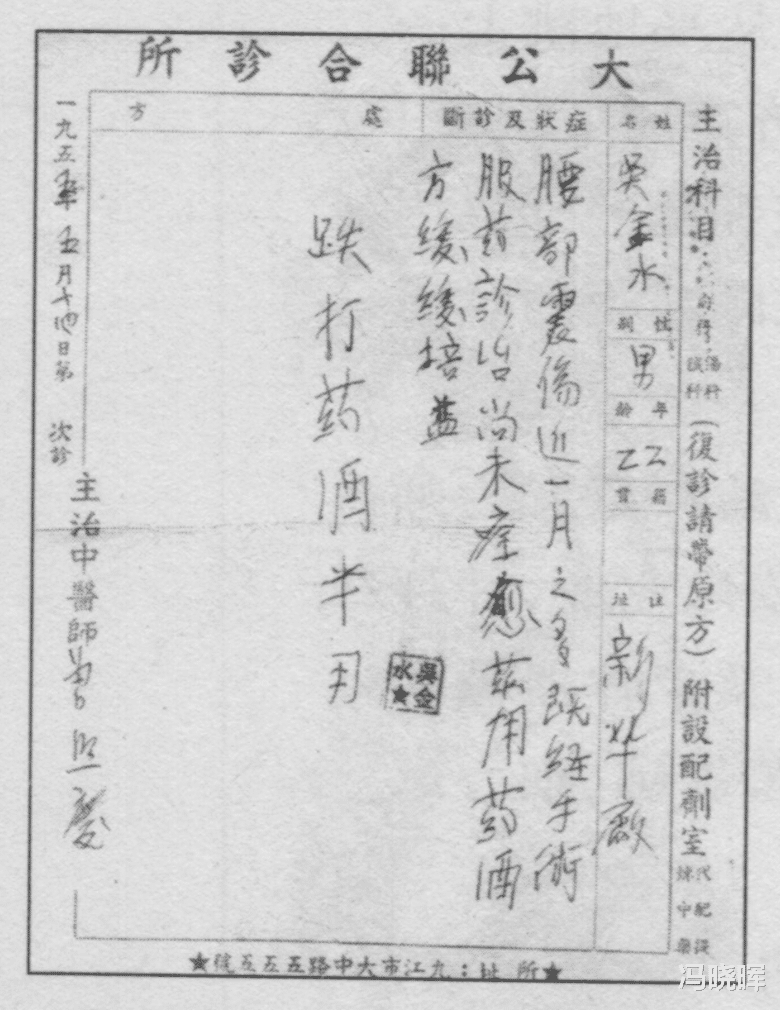 大公聯合診所
主治科目
傷科
針科
(復診請帶原方)附設配劑室
代配
姓名
吳金水
性別
男
年齡
籍貫
住址
新華廠
症狀及診斷
腰部震傷近一月之多既經手術
服药診治尚未痊愈茲用药酒
方緩緩培益
處方
跌打药酒半斤
吳金水★
一九五五年五月十四日第 次診
主治中醫師
★所址:九江市大中路五五五號★
冯晓晖